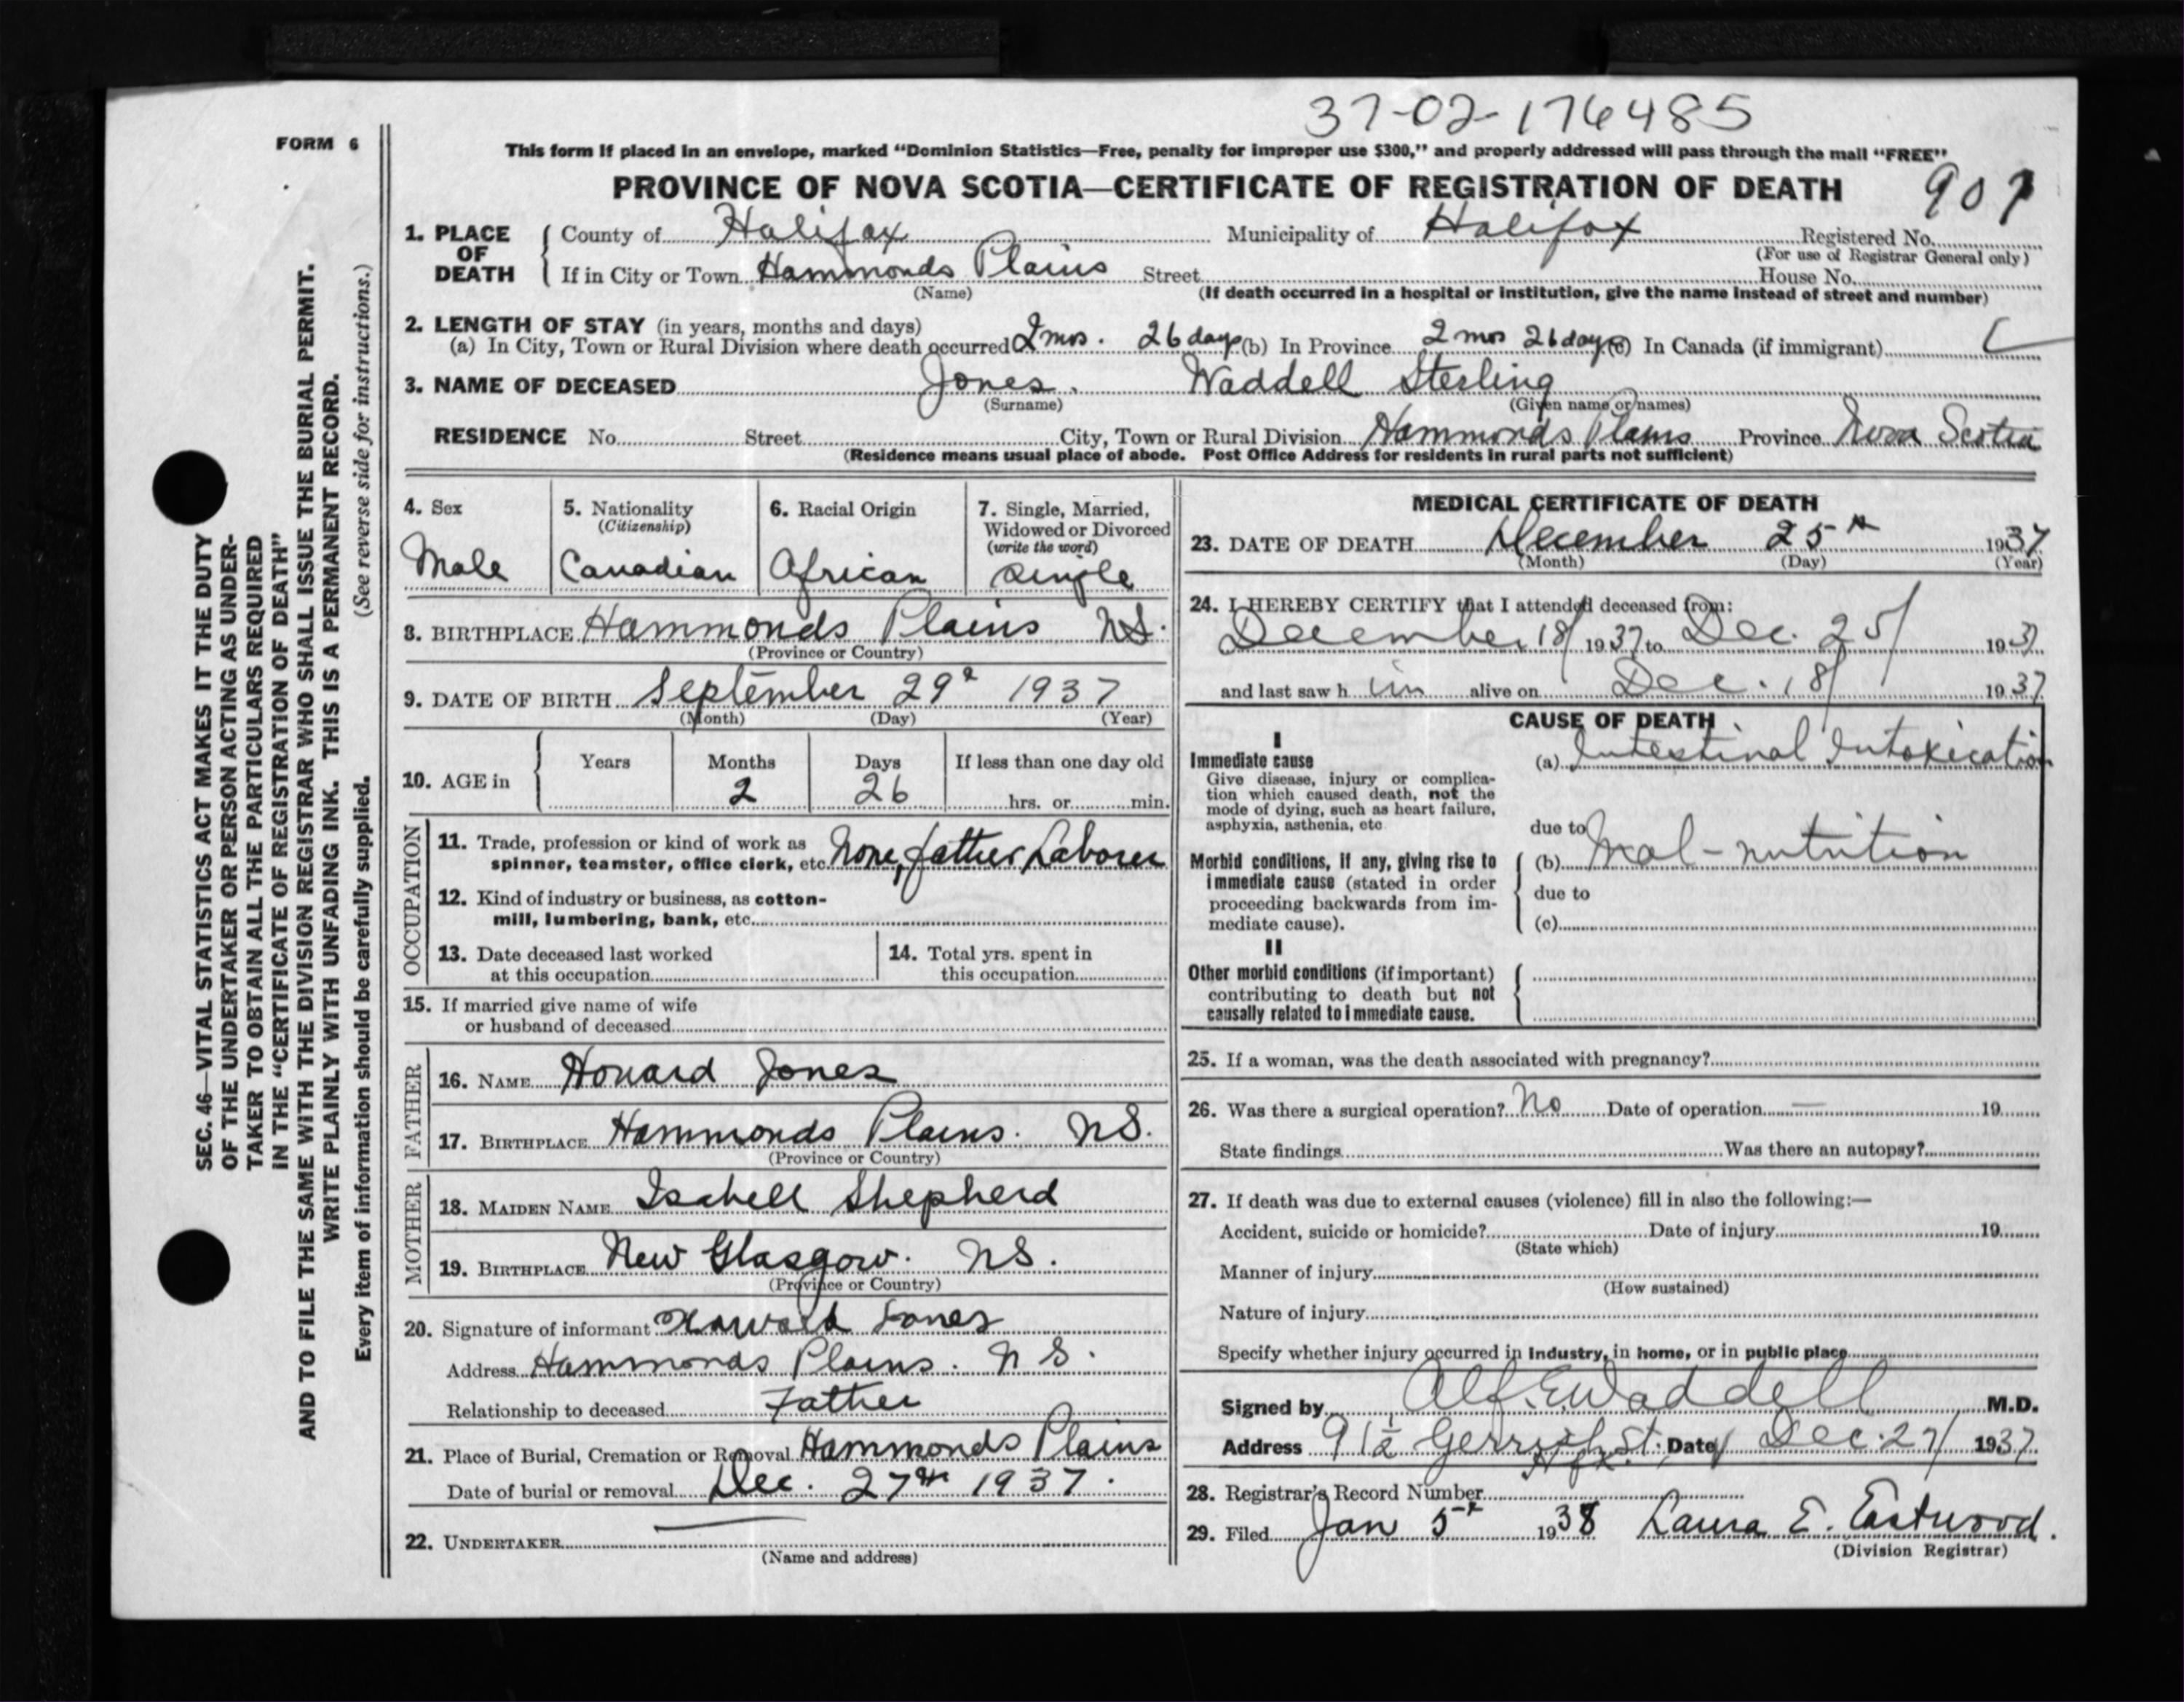 37-02-176485
FORM 6
This form if placed in an envelope, marked “Dominion Statistics—Free, penalty for improper use $300,” and properly addressed will pass through the mail “FREE”
PROVINCE OF NOVA SCOTIA—CERTIFICATE OF REGISTRATION OF DEATH
907
1. PLACE OF DEATH County of Halifax Municipality of Halifax Registered No.
(For use of Registrar General only)
If in City or Town Hammonds Plains Street House No.
(Name) (If death occurred in a hospital or institution, give the name instead of street and number)
2. LENGTH OF STAY (in years, months and days)
(a) In City, Town or Rural Division where death occurred 2 mos. 26 days (b) In Province 2 mos 26 days (c) In Canada (if immigrant)
3. NAME OF DECEASED Jones. Waddell Sterling
(Surname) (Given name or names)
RESIDENCE No. Street City, Town or Rural Division Hammonds Plains Province Nova Scotia
(Residence means usual place of abode. Post Office Address for residents in rural parts not sufficient)
4. Sex
Male
5. Nationality
(Citizenship)
Canadian
6. Racial Origin
African
7. Single, Married,
Widowed or Divorced
(write the word)
Single
8. BIRTHPLACE Hammonds Plains NS.
(Province or Country)
9. DATE OF BIRTH September 29 1937
(Month) (Day) (Year)
10. AGE in Years Months Days If less than one day old
2 26 hrs. or min.
OCCUPATION
11. Trade, profession or kind of work as
spinner, teamster, office clerk, etc. None, father, Laborer
12. Kind of industry or business, as cotton-
mill, lumbering, bank, etc.
13. Date deceased last worked
at this occupation
14. Total yrs. spent in
this occupation
15. If married give name of wife
or husband of deceased
FATHER
16. NAME Howard Jones
17. BIRTHPLACE Hammonds Plains. NS.
(Province or Country)
MOTHER
18. MAIDEN NAME Isabell Shepherd
19. BIRTHPLACE New Glasgow. NS.
(Province or Country)
20. Signature of informant Howard Jones
Address Hammonds Plains. N S.
Relationship to deceased Father
21. Place of Burial, Cremation or Removal Hammonds Plains
Date of burial or removal Dec. 27th 1937.
22. UNDERTAKER
(Name and address)
MEDICAL CERTIFICATE OF DEATH
23. DATE OF DEATH December 25th 1937
(Month) (Day) (Year)
24. I HEREBY CERTIFY that I attended deceased from:
December 18/ 1937 to Dec. 25/ 1937
and last saw him alive on Dec. 18/ 1937
CAUSE OF DEATH
I
Immediate cause
Give disease, injury or complica-
tion which caused death, not the
mode of dying, such as heart failure,
asphyxia, asthenia, etc
(a) Intestinal Intoxication
due to
Morbid conditions, if any, giving rise to
immediate cause (stated in order
proceeding backwards from im-
mediate cause).
(b) Mal-nutrition
due to
(c)
II
Other morbid conditions (if important)
contributing to death but not
causally related to immediate cause.
25. If a woman, was the death associated with pregnancy?
26. Was there a surgical operation? No Date of operation — 19
State findings Was there an autopsy?
27. If death was due to external causes (violence) fill in also the following:—
Accident, suicide or homicide? Date of injury 19
(State which)
Manner of injury
(How sustained)
Nature of injury
Specify whether injury occurred in industry, in home, or in public place
Signed by Alf. E. Waddell M.D.
Address 91½ Gerrish St. Hfx. Date Dec. 27/ 1937
28. Registrar's Record Number
29. Filed Jan 5th 1938 Laura E. Eastwood.
(Division Registrar)
SEC. 46—VITAL STATISTICS ACT MAKES IT THE DUTY
OF THE UNDERTAKER OR PERSON ACTING AS UNDER-
TAKER TO OBTAIN ALL THE PARTICULARS REQUIRED
IN THE “CERTIFICATE OF REGISTRATION OF DEATH”
AND TO FILE THE SAME WITH THE DIVISION REGISTRAR WHO SHALL ISSUE THE BURIAL PERMIT.
WRITE PLAINLY WITH UNFADING INK. THIS IS A PERMANENT RECORD.
Every item of information should be carefully supplied. (See reverse side for instructions.)